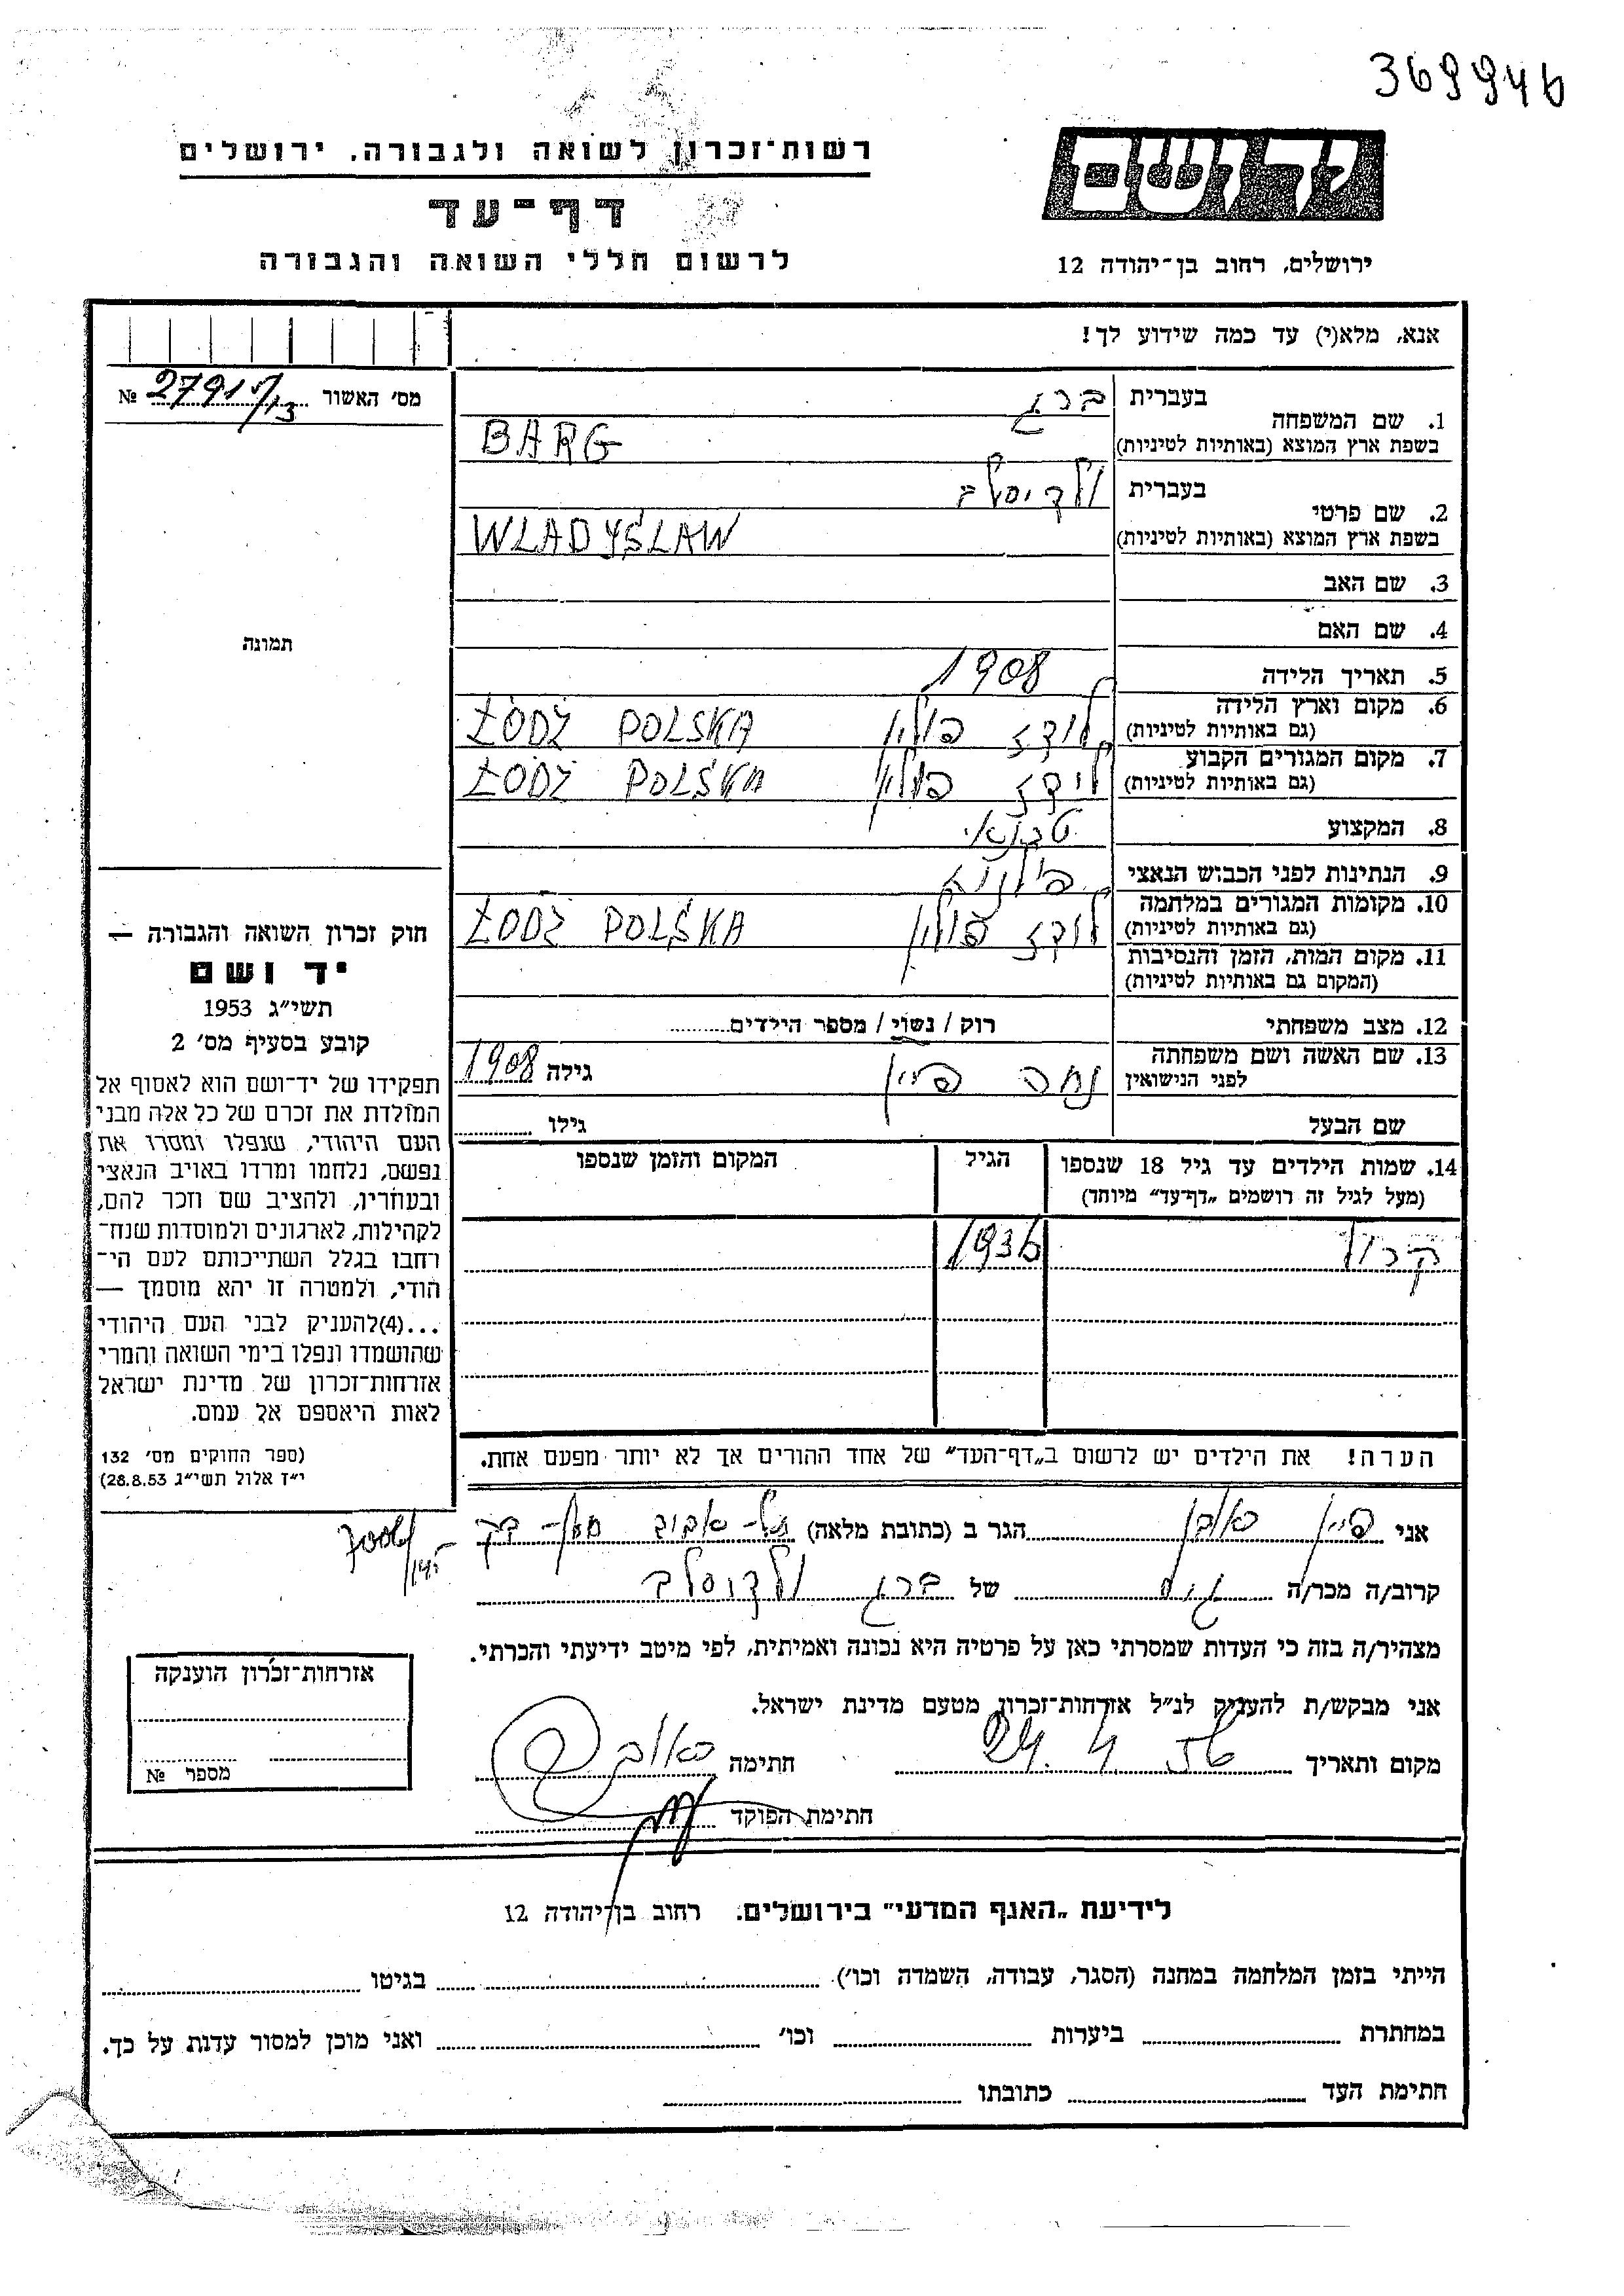 369946
ידושם
ירושלים, רחוב בן־יהודה 12
רשות־זכרון לשואה ולגבורה, ירושלים
דף־עד
לרשום חללי השואה והגבורה
אנא, מלא(י) עד כמה שידוע לך!
מס׳ האשור № 27915/13
תמונה
1. שם המשפחה
בעברית ברג
בשפת ארץ המוצא (באותיות לטיניות) BARG
2. שם פרטי
בעברית ולדיסלב
בשפת ארץ המוצא (באותיות לטיניות) WLADYSLAW
3. שם האב
4. שם האם
5. תאריך הלידה 1908
6. מקום וארץ הלידה (גם באותיות לטיניות) לודז פולין ŁODŻ POLSKA
7. מקום המגורים הקבוע (גם באותיות לטיניות) לודז פולין ŁODŻ POLSKA
8. המקצוע טכנאי
9. הנתינות לפני הכבוש הנאצי
10. מקומות המגורים במלחמה (גם באותיות לטיניות) לודז פולין ŁODŻ POLSKA
11. מקום המות, הזמן והנסיבות (המקום גם באותיות לטיניות)
12. מצב משפחתי רוק / נשוי / מספר הילדים
13. שם האשה ושם משפחתה לפני הנישואין פיין גילה 1908
שם הבעל גילו
14. שמות הילדים עד גיל 18 שנספו (מעל לגיל זה רושמים „דף־עד״ מיוחד) הגיל המקום והזמן שנספו
קרול 1936
הערה! את הילדים יש לרשום ב„דף־העד״ של אחד ההורים אך לא יותר מפעם אחת.
חוק זכרון השואה והגבורה —
יד ושם
תשי״ג 1953
קובע בסעיף מס׳ 2
תפקידו של יד־ושם הוא לאסוף אל
המולדת את זכרם של כל אלה מבני
העם היהודי, שנפלו ומסרו את
נפשם, נלחמו ומרדו באויב הנאצי
ובעוזריו, ולהציב שם וזכר להם,
לקהילות, לארגונים ולמוסדות שנח־
רחבו בגלל השתייכותם לעם הי־
הודי, ולמטרה זו יהא מוסמך —
...(4)להעניק לבני העם היהודי
שהושמדו ונפלו בימי השואה והמרי
אזרחות־זכרון של מדינת ישראל
לאות היאספם אל עמם.
(ספר החוקים מס׳ 132
י״ז אלול תשי״ג 28.8.53)
אני פיין ראובן הגר ב (כתובת מלאה) תל-אביב
קרוב/ה מכר/ה גיס של ברג ולדיסלב
מצהיר/ה בזה כי העדות שמסרתי כאן על פרטיה היא נכונה ואמיתית, לפי מיטב ידיעתי והכרתי.
אני מבקש/ת להעניק לנ״ל אזרחות־זכרון מטעם מדינת ישראל.
מקום ותאריך 24.4.56 חתימה ראובן
חתימת הפוקד
אזרחות־זכרון הוענקה
מספר №
לידיעת „האגף המדעי״ בירושלים. רחוב בן־יהודה 12
הייתי בזמן המלחמה במחנה (הסגר, עבודה, השמדה וכו׳) בגיטו
במחתרת ביערות וכו׳ ואני מוכן למסור עדות על כך.
חתימת העד כתובתו